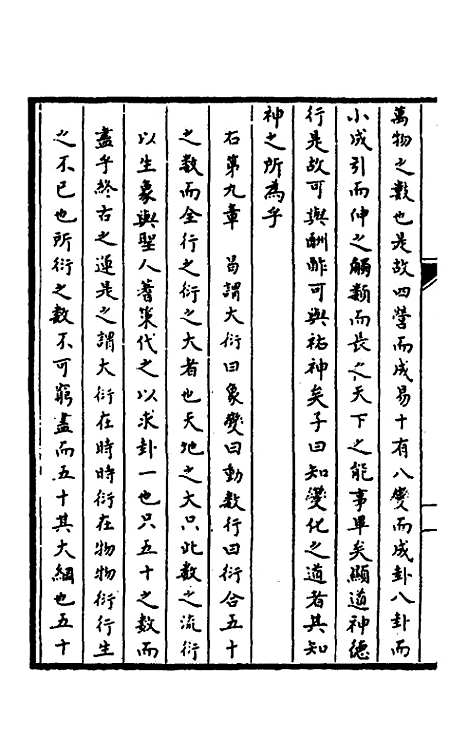 萬物之數也是故四營而成易十有八變而成卦八卦而
小成引而伸之觸類而長之天下之能事畢矣顯道神德
行是故可與酬酢可與祐神矣子曰知變化之道者其知
神之所為乎
右第九章　曷謂大衍曰象變曰動數行曰衍合五十
之數而全行之衍之大者也天地之大只此數之流衍
以生象與聖人蓍策代之以求卦一也只五十之數而
盡乎終古之運是之謂大衍在時時衍在物物衍衍生
之不已也所衍之數不可窮盡而五十其大綱也五十